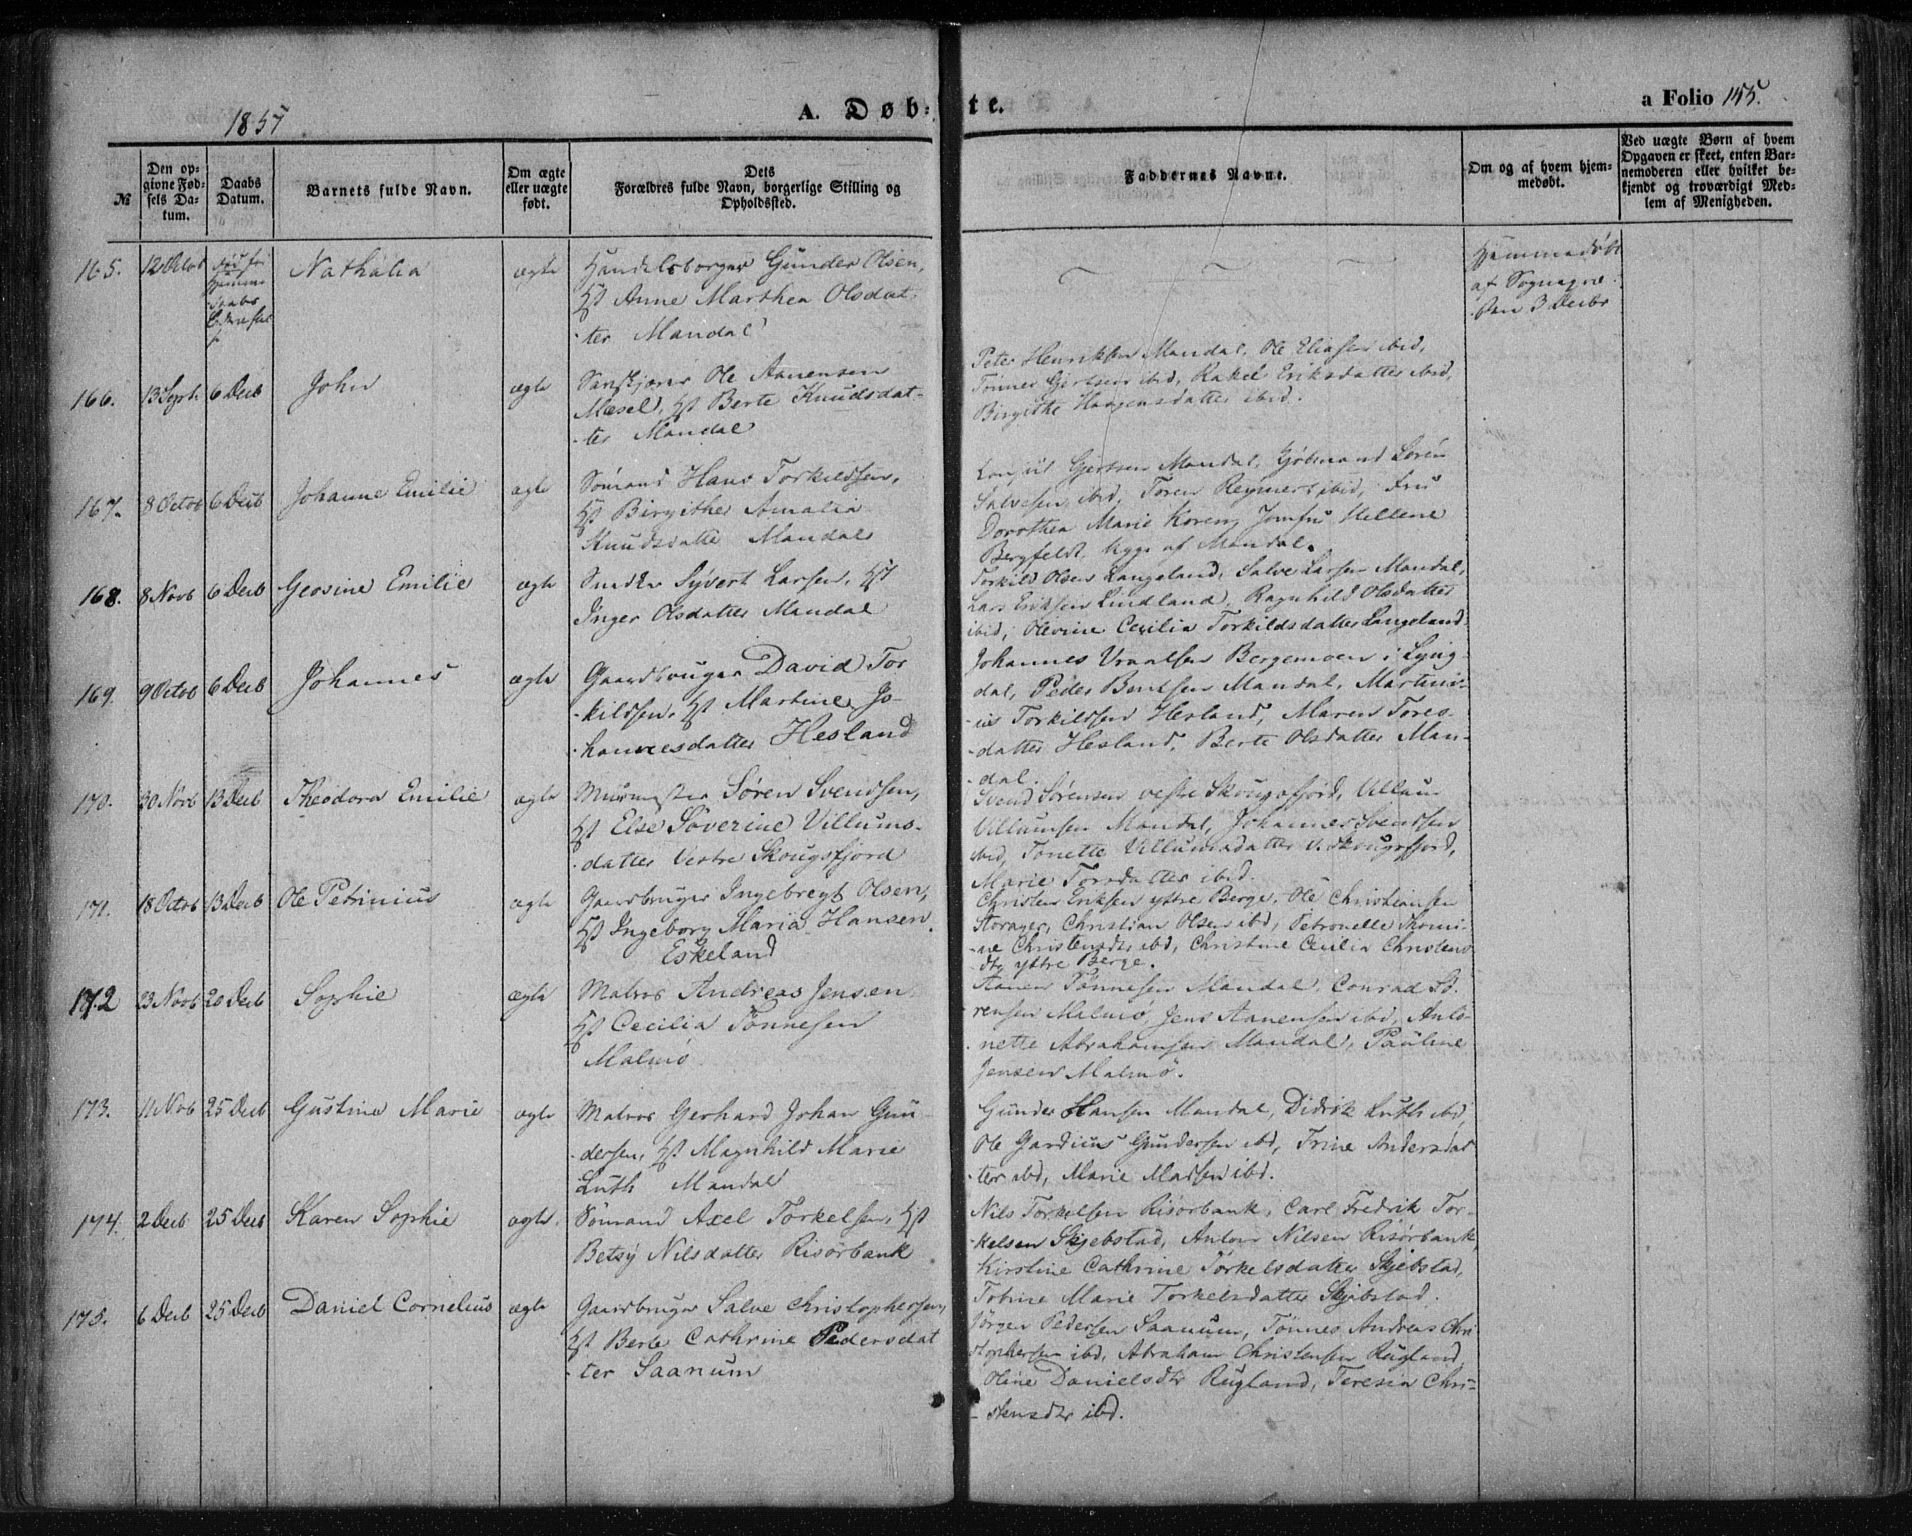 1857
A. Døb=
te.
a Folio 155.
№
Den op-
givne Fød-
sels Da-
tum.
Daabs
Datum.
Barnets fulde Navn.
Om ægte
eller uægte
født.
Dets
Forældres fulde Navn, borgerlige Stilling og
Opholdssted.
Faddernes Navne.
Om og af hvem hjem-
medøbt.
Ved uægte Børn af hvem
Opgaven er skeet, enten Bar-
nemoderen eller hvilket be-
kjendt og troværdigt Med-
lem af Menigheden.
165.
12 Octob
Nathalia
ægte
Handelsborger Gunder Olsen,
Hst Anne Marthea Olsdat-
-ter Mandal
Hjemmedøbt
af Sognepræ.
den 3 Decbr
166.
13 Septb
6 Decb
John
ægte
Ole Aanensen
Mæsel, Hst Berte Knudsdat-
-ter Mandal
Peter Henriksen Mandal, Ole Eliasen ibid,
Tønnes Gjertsen ibid, Rakel Eriksdatter ibid,
Birgithe Haagensdatter ibid.
167.
8 Octob
6 Decb
Johanne Emilie
ægte
Sømand Hans Torkildsen,
Hst Birgithe Amalia
Knudsdatter Mandal
Consul Gjertsen Mandal, Kjøbmand Søren
Salvesen ibid, Toren Reymert ibid, Fru
Dorothea Marie Koren, Jomfru Hellene
Bergfeldt, begge af Mandal.
168.
8 Novb
6 Decb
Geosine Emilie
ægte
Snedker Syvert Larsen, Hst
Inger Olsdatter Mandal
Torkild Olsen Langeland, Salve Larsen Mandal,
Lars Eriksen Lindland, Ragnhild Olsdatter
ibid, Olevine Cecilia Torkildsdatter Langeland.
169.
9 Octob
6 Decb
Johannes
ægte
Gaardbruger David Tor
-kildsen, Hst Martine Jo-
hannesdatter Hesland
Johannes Vraalsen Bergemoen i Lyng-
dal, Peder Bentsen Mandal, Martini-
-us Torkildsen Hesland, Maren Tores-
-datter Hesland, Berte Olsdatter Man-
-dal.
170.
30 Novb
13 Decb
Theodora Emilie
ægte
Murmester Søren Svendsen,
Hst Else Søverine Villums-
-datter Vestre Skougsfjord
Svend Sørensen vestre Skougsfjord, Villum
Villumsen Mandal, Johannes Svendsen
ibid, Tonette Villumsdatter V. Skougsfjord,
Marie Torsdatter ibid.
171.
18 Octob
13 Decb
Ole Petrinius
ægte
Gaardbruger Ingebregt Olsen,
Hst Ingeborg Maria Hansen
Eskeland
Christen Eriksen yttre Berge, Ole Christiansen
Storager, Christian Olsen ibd, Petronelle Thomi-
-ne Christensdtr ibd, Christine Cecilia Christens
-dtr yttre Berge.
172
23 Novb
20 Decb
Sophie
ægte
Matros Andreas Jensen
Hst Cecilia Tønnesen
Malmø
Aanen Tønnesen Mandal, Conrad Sø-
rensen Malmø, Jens Aanensen ibid, Anto-
nette Abrahamsen Mandal, Pauline
Jensen Malmø.
173.
11 Novb
25 Decb
Gustine Marie
ægte
Matros Gerhard Johan Gun-
-dersen, Hst Magnhild Marie
Luth Mandal
Gunder Hansen Mandal, Didrik Luth ibd,
Ole Gardius Gundersen ibd, Trine Andersdat
-ter ibd, Marie Madsen ibd.
174.
2 Decb
25 Decb
Karen Sophie
ægte.
Sømand Axel Torkelsen, Hst
Betsy Nilsdatter Risørbank
Nils Torkelsen Risørbank, Carl Fredrik Tor-
-kelsen Skjebstad, Anton Nilsen Risørbank,
Kirstine Cathrine Torkelsdatter Skjebstad,
Tobine Marie Torkelsdatter Skjebstad.
175.
6 Decb
25 Decb
Daniel Cornelius
ægte
Gaardbruger Salve Christophersen,
Hst Berte Cathrine Pedersdat
-ter Saanum
Jørgen Pedersen Saanum, Tønnes Andreas Chri
stophersen ibd, Abraham Christensen Rugland,
Oline Danielsdtr Rugland, Teresia Chri-
-stensdtr ibd.